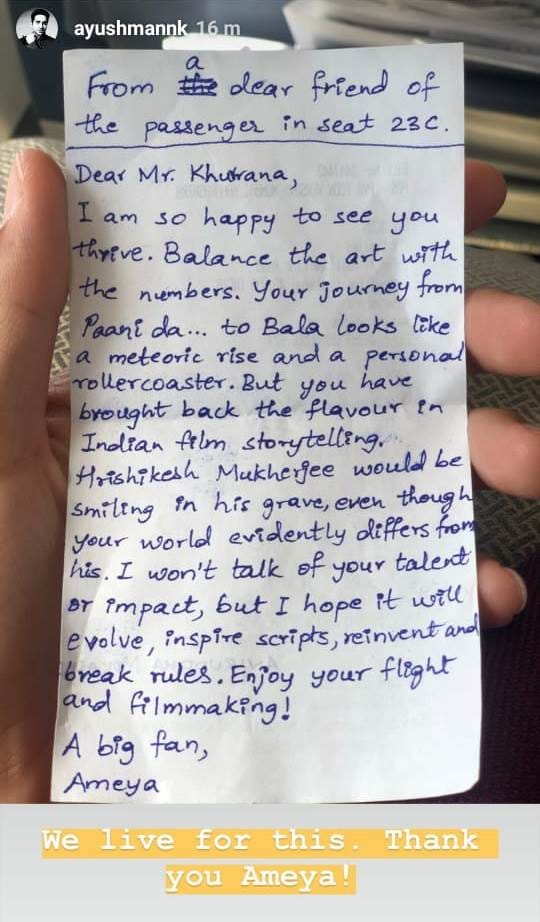 ayushmannk 16 m
a
From the dear friend of
the passenger in seat 23C.
Dear Mr. Khurana,
I am so happy to see you
thrive. Balance the art with
the numbers. Your journey from
Paani da... to Bala looks like
a meteoric rise and a personal
rollercoaster. But you have
brought back the flavour in
Indian film storytelling.
Hrishikesh Mukherjee would be
smiling in his grave, even though
your world evidently differs from
his. I won't talk of your talent
or impact, but I hope it will
evolve, inspire scripts, reinvent and
break rules. Enjoy your flight
and filmmaking!
A big fan,
Ameya
We live for this. Thank
you Ameya!